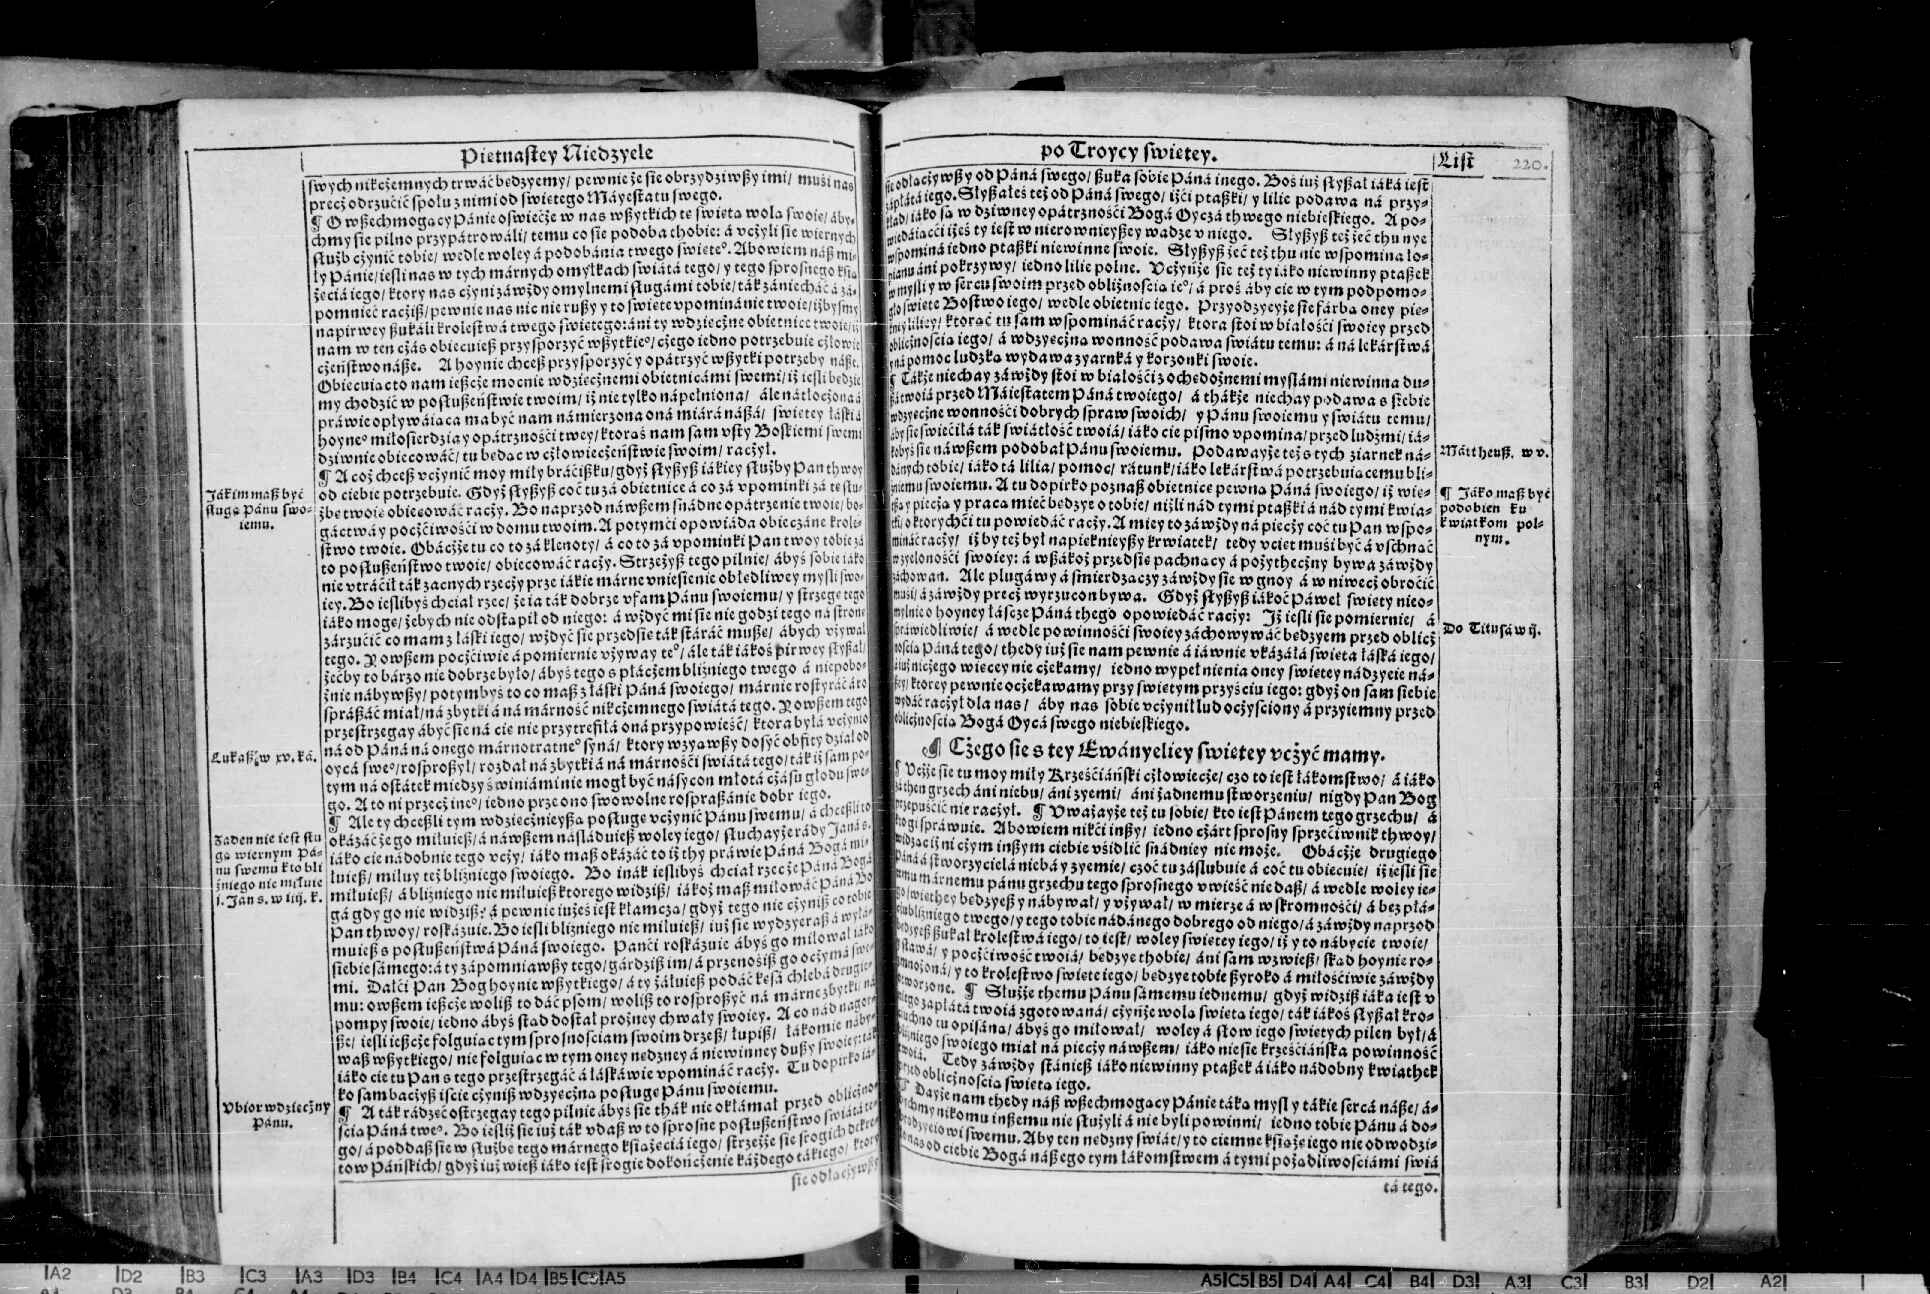 Pietnastey Niedzyele
swych nikcżemnych trwáć bedzyemy/ pewnie że sie obrzydziwßy imi/ muśi nas
precż odrzućić społu z nimi od swietego Máyestatu swego.
¶ O wßechmogacy Pánie oświećże w nas wßytkich te swieta wola swoie/ áby-
chmy sie pilno przypátrowáli/ temu co sie podoba thobie: á vcżyli sie wiernych
służb cżynić tobie/ wedle woley á podobánia twego swiete⁰. Abowiem náß mi-
ły Pánie/ iesli nas w tych márnych omylkach swiátá tego/ y tego sprosnego ksia
żeciá iego/ ktory nas cżyni záwżdy omylnemi sługámi tobie/ ták zániecháć á zá-
pomnieć racżiß/ pewnie nas nic nie rußy y to swiete vpominánie twoie/ iżbysmy
napirwey ßukáli krolestwá twego swietego: áni ty wdziecżne obietnice twoie/ iż
nam w ten cżás obiecuieß przysporzyć wßytkie⁰/ cżego iedno potrzebuie cżłowie
cżeństwo náße. A hoynie chceß przysporzyć y opátrzyć wßytki potrzeby náße.
Obiecuiac to nam ießcże mocnie wdziecżnemi obietnicámi swemi/ iż iesli bedzie
my chodzić w posłußeństwie twoim/ iż nie tylko nápełniona/ ále nátłocżona á
práwie opływáiaca ma być nam námierzona oná miárá náßá/ swietey łáski á
hoyne⁰ miłosierdzia y opátrznośći twey/ ktoraś nam sam vsty Boskiemi swemi
dziwnie obiecowáć/ tu bedac w cżłowiecżeństwie swoim/ racżył.
¶ A coż chceß vcżynić moy miły bráćißku/ gdyż słyßyß iákiey służby Pan thwoy
od ciebie potrzebuie. Gdyż słyßyß coć tu zá obietnice á co zá vpominki zá te słu-
żbe twoie obiecowáć racży. Bo naprzod náwßem snádne opátrzenie twoie/ bo-
gáctwá y pocżćiwośći w domu twoim. A potymći opowiáda obiecżáne kroli-
stwo twoie. Obácżże tu co to zá klenoty/ á co to zá vpominki Pan twoy tobie zá
to posłußeństwo twoie/ obiecowáć racży. Strzeżyß tego pilnie/ ábyś sobie iáko
nie vtráćił ták zacnych rzecży prze iákie márne vniesienie obłedliwey mysli swo-
iey. Bo ieslibyś chćiał rzec/ że ia ták dobrze vfam Pánu swoiemu/ y strzege tego
iáko moge/ żebych nie odstapił od niego: á wżdyć mi sie nie godzi tego ná strone
zárzućić co mam z łáski iego/ wżdyć sie przedsie ták stáráć muße/ ábych vżywał
tego. Y owßem pocżćiwie á pomiernie vżyway te⁰/ ále ták iákoś pirwey słyßał/
żećby to bárzo nie dobrze było/ ábyś tego s płácżem bliźniego twego á niepobo-
żnie nábywßy/ potym byś to co maß z łáski Páná swoiego/ márnie rostyráć áro
spráßáć miał/ ná zbytki á na márność nikcżemnego swiátá tego. Y owßem tego
przestrzegay ábyć sie ná cie nie przytrefiłá oná przypowieść/ ktora byłá vcżynio
ná od Páná ná onego márnotratne⁰ syná/ ktory wzyawßy dosyć obfity dział od
oycá swe⁰/ rosproßył/ rozdał ná zbytki á ná márnośći swiátá tego/ ták iż sam po-
tym ná ostátek miedzy świniámi nie mogł być násycon młotá cżásu głodu swe-
go. A to ni przecż ine⁰/ iedno prze ono swowolne rospraßánie dobr iego.
¶ Ale ty chceßli tym wdziecżnieyßa posługe vcżynić Pánu swemu/ á chceßli to
okázáć że go miłuieß/ á náwßem náśláduieß woley iego/ słuchayże rády Janá s.
iáko cie nádobnie tego vcży/ iáko maß okázáć to iż thy práwie Páná Bogá mi-
łuieß/ miłuy też bliźniego swoiego. Bo inák ieslibyś chćiał rzec że Páná Bogá
miłuieß/ á bliźniego nie miłuieß ktorego widziß/ iákoż maß miłowáć Páná Bo
gá gdy go nie widziß: á pewnie iużeś iest kłamcza/ gdyż tego nie cżyniß co tobie
Pan thwoy/ roskázuie. Bo iesli bliźniego nie miłuieß/ iuż sie wydzyeraß á wyłá-
muieß s posłußeństwá Páná swoiego. Panći roskázuie ábyś go miłował iáko
siebie sámego: á ty zápomniawßy tego/ gárdziß im/ á przenośiß go ocżymá swe
mi. Dałći Pan Bog hoynie wßytkiego/ á ty żáłuieß podáć kesá chlebá drugie-
mu: owßem ießcże woliß to dáć psom/ woliß to rosproßyć ná márne zbytki/ ná
pompy swoie/ iedno ábyś stad dostał prożney chwały swoiey. A co nád nagor-
ße/ iesli ießcże folguiac tym sprosnosciam swoim drzeß/ łupiß/ łákomie náby-
waß wßytkiego/ nie folguiac w tym oney nedzney á niewinney dußy swoiey: ták
iáko cie tu Pan s tego przestrzegáć á łáskáwie vpomináć racży. Tu dopirko iá-
ko sam bacżyß iscie cżyniß wdzyecżna posługe Pánu swoiemu.
¶ A ták rádzeć ostrzegay tego pilnie ábyś sie thák nie okłamał przed obliczno-
scia Páná twe⁰. Bo iesliż sie iuż ták vdaß w to sprosne posłußeństwo swiátá te-
go/ á poddaß sie w służbe tego márnego książeciá iego/ strzeżże sie srogich dekre-
tow Páńskich/ gdyż iuż wieß iáko iest srogie dokończenie káżdego tákiego/ ktory
sie odłacżywßy
Jákim maß być
sługa Pánu swo-
iemu.
Lukaß w xv. ká.
Żaden nie iest słu
ga wiernym Pá-
nu swemu kto bli
źniego nie miłuie
j. Jan s. w iiij. k.
Vbior wdziecżny
Pánu.
po Troycy swietey.
List 220.
sie odłacżywßy od Páná swego/ ßuka sobie Páná inego. Boś iuż słyßał iáká iest
zápłátá iego. Słyßałeś też od Páná swego/ iżći ptaßki/ y lilie podawa ná przy-
kład/ iáko sa w dziwney opátrznośći Bogá Oyczá thwego niebieskiego. A po-
wiedáiacći iżeś ty iest w nierownieyßey wadze v niego. Słyßyß też żeć thu nye
wspomina iedno ptaßki niewinne swoie. Słyßyß żeć też thu nie wspomina ło-
pianu áni pokrzywy/ iedno lilie polne. Vcżyńże sie też ty iáko niewinny ptaßek
w mysli y w sercu swoim przed obliżnoscia ie⁰/ á proś áby cie w tym podpomo-
gło swiete Bostwo iego/ wedle obietnic iego. Przyodzyeyże sie fárba oney pie-
kney liliey/ ktorąć tu sam wspomináć racży/ ktora stoi w białośći swoiey przed
oblicżnoscia iego/ á wdzyecżna wonność podawa swiátu temu: á ná lekárstwá
y ná pomoc ludzka wydawa zyarnká y korzonki swoie.
¶ Tákże niechay záwżdy stoi w białośći z ochedożnemi myslámi niewinna du-
ßá twoiá przed Máiestatem Páná twoiego/ á thákże niechay podawa s siebie
wdzyecżne wonnośći dobrych spraw swoich/ y Pánu swoiemu y swiátu temu/
áby sie swiećiłá ták swiátłość twoiá/ iáko cie pismo vpomina/ przed ludźmi/ iá-
kobyś sie náwßem podobał Pánu swoiemu. Podawayże też s tych ziarnek ná-
dánych tobie/ iáko tá lilia/ pomoc/ rátunk/ iáko lekárstwá potrzebuiacemu bli-
źniemu swoiemu. A tu dopirko poznaß obietnice pewna Páná swoiego/ iż wie-
tßa y piecża y praca mieć bedzye o tobie/ niżli nád tymi ptaßki á nád tymi kwia-
tki/ o ktorychći tu powiedáć racży. A miey to záwżdy ná piecży coć tu Pan wspo-
mináć racży/ iż by też był napieknieyßy krwiatek/ tedy vciet muśi być á vschnać
w zyelonośći swoiey: á wßákoż przedsie páchnacy á pożythecżny bywa záwżdy
záchowan. Ale plugáwy á śmierdzaczy záwżdy sie w gnoy á w niwecż obroćić
muśi/ á záwżdy precż wyrzucon bywa. Gdyż słyßyß iákoć Páweł swiety nieo-
mylnie o hoyney łásce Páná thego opowiedáć racży: Iż iesli sie pomiernie/ á
spráwiedliwie/ á wedle powinnośći swoiey záchowywáć bedzyem przed oblicż
noscia Páná tego/ thedy iuż sie nam pewnie á iáwnie vkázáłá swieta łáská iego/
á iuż nicżego wiecey nie cżekamy/ iedno wypełnienia oney swietey nádzyeie ná-
ßey/ ktorey pewnie ocżekawamy przy swietym przyściu iego: gdyż on sam siebie
wydáć racżył dla nas/ áby nas sobie vcżynił lud ocżyściony á przyiemny przed
oblicżnoscia Bogá Oycá swego niebieskiego.
¶ Cżego sie s tey Ewányeliey swietey vcżyć mamy.
¶ Vcżże sie tu moy miły Krześćiáński cżłowiecże/ czo to iest łákomstwo/ á iáko
zá then grzech áni niebu/ áni zyemi/ áni żadnemu stworzeniu/ nigdy Pan Bog
przepuśćić nie racżył. ¶ Vważayże też tu sobie/ kto iest Pánem tego grzechu/ á
kto gi spráwuie. Abowiem nikći inßy/ iedno cżárt sprosny sprzećiwnik thwoy/
widzac iż ni cżym inßym ciebie vśidlić snádniey nie może. Obácżże drugiego
Páná á stworzyćielá niebá y zyemie/ czoć tu záslubuie á coć tu obiecuie/ iż iesli sie
temu márnemu pánu grzechu tego sprosnego vwieść nie daß/ á wedle woley ie-
go/ swiethey bedzyeß y nábywał/ y vżywał/ w mierze á w skromnośći/ á bez płá-
czu bliźniego twego/ y tego tobie nádánego dobrego od niego/ á záwżdy naprzod
bedzyeß ßukał krolestwá iego/ to iest/ woley swietey iego/ iż y to nábycie twoie/
y sławá/ y pocżćiwość twoiá/ bedzye thobie/ áni sam wzwieß/ skad hoynie ro-
zmnożoná/ y to krolestwo swiete iego/ bedzye tobie ßyroko á miłośćiwie záwżdy
otworzone. ¶ Służże themu Pánu sámemu iednemu/ gdyż widziß iáká iest v
niego zapłátá twoiá zgotowána/ cżyńże wola swieta iego/ ták iákoś słyßał kro-
ciuchno tu opisána/ ábyś go miłował/ woley á słow iego swietych pilen był/ á
bliźniego swoiego miał ná piecży náwßem/ iáko niesie krześćiáńska powinność
twoiá. Tedy záwżdy stánieß iáko niewinny ptaßek á iáko nadobny kwiathek
przed oblicżnoscia swieta iego.
¶ Dayże nam thedy náß wßechmogacy Pánie táka mysl y tákie sercá náße/ á-
bychmy nikomu inßemu nie służyli á nie byli powinni/ iedno tobie Pánu á do-
brodzyeiowi swemu. Aby ten nedzny swiát/ y to ciemne książe iego nie odwodzi-
ło nas od ciebie Bogá náßego tym łákomstwem á tymi pożadliwosciámi swiá
tá tego.
Mattheuß. w v.
¶ Jáko maß być
podobien ku
kwiatkom pol-
nym.
Do Titusá w ij.
A2 D2 B3 C3 A3 D3 B4 C4 A4 D4 B5 C5 A5
A5 C5 B5 D4 A4 C4 B4 D3 A3 C3 B3 D2 A2